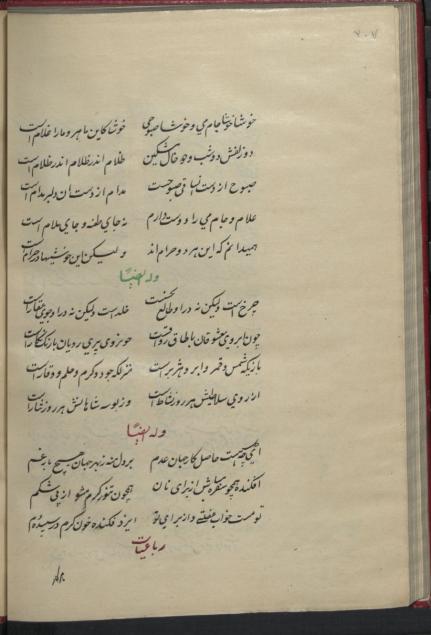 خوشا خوشا جام می و خوشا صبوحی خوشا کاین ماهرو مارا غلام است
دو زلفش دو شب و جو خال مشکین ظلام اندر ظلام اندر ظلام است
صبوح از دست آن ساقی صبوحست مدام از دست آن دلبر مدام است
غلام و جام می را دوست دارم نه جای طعنه و جای ملام است
همیدانم که این هر دو حرام اند ولیکن این خوشیها در حرام است
وله ایضاً
چرخ است ولیکن نه درو طالع نحست خلد است ولیکن نه درو جوی عقار است
چون ابروی معشوقان با طاق و رواقست چون روی پریرویان با رنگ و نگار است
شمس و قمر و ابر و هژبر است جود و کرم و حلم و وقار است
از روی سلاطینش هر روز نشاط است وز بوسه شاهانش هر روز نثار است
وله ایضاً
ای چیست حاصل کار جهان عدم بر دل منه ز بهر جهان هیچ بار غم
افکنده همچو سفره مباش از برای نان همچون تنور گرم مشو از پی شکم
تو مست خواب غفلتی و از برای تو ایزد فکنده خوان کرم در سپیده دم
رباعیات